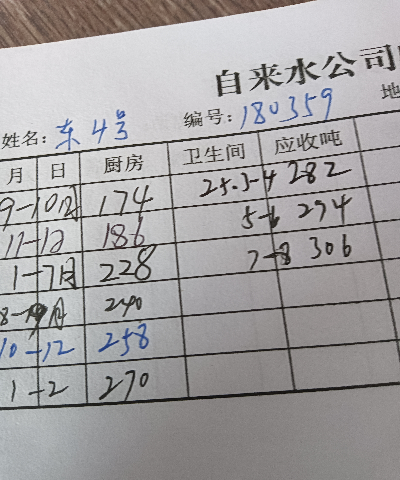 自来水公司
姓名: 东4号 编号: 180359 地
月 日 厨房 卫生间 应收吨
9-10月 174 25.3-4 282
11-12 186 5-6 294
1-7月 228 7-8 306
8-9月 240
10-12 258
1-2 270